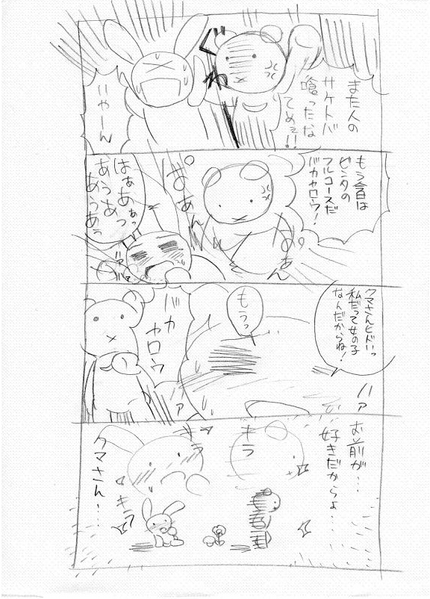 また人の
サケトバ
喰ったな
てめェ!!
いやーん
もう今日は
ビンタの
フルコースだ
バカヤロウ!
ぱぁん
はぁあっ
あうあぁっ
あうあぁ
クマさんヒドいっ
私だって女の子
なんだからね!
もうっ
バカ
ヤロウ
ハァ
お前が…
好きだからよ…
キラ
キラ
クマさん…
キラ